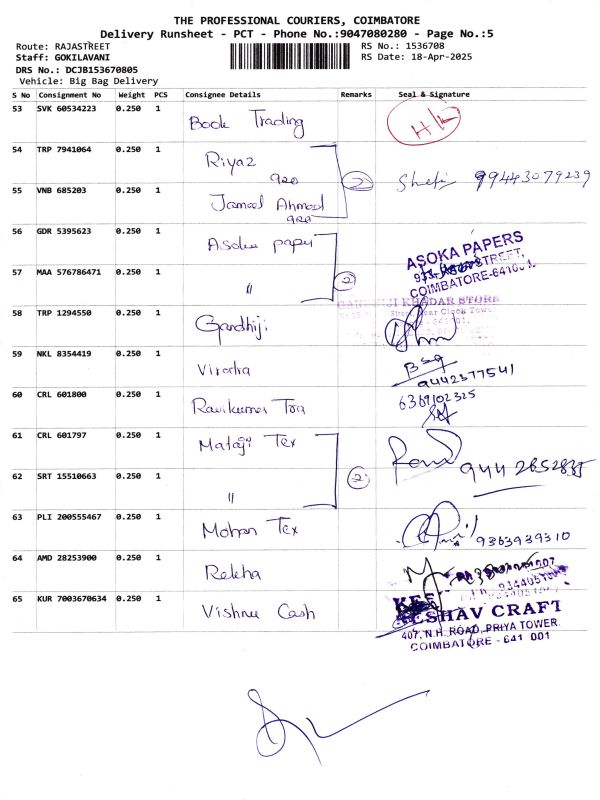 THE PROFESSIONAL COURIERS, COIMBATORE
Delivery Runsheet - PCT - Phone No.:9047080280 - Page No.:5
Route: RAJASTREET RS No.: 1536708
Staff: GOKILAVANI RS Date: 18-Apr-2025
DRS No.: DCJB153670805
Vehicle: Big Bag Delivery
S No Consignment No Weight PCS Consignee Details Remarks Seal & Signature
53 SVK 60534223 0.250 1 Book Trading H/L
54 TRP 7941064 0.250 1 Riyaz
920 2 99443079239
55 VNB 685203 0.250 1 Jamal Ahmed
920
56 GDR 5395623 0.250 1 Asoka paper ASOKA PAPERS
STREET,
57 MAA 576786471 0.250 1 " 2 COIMBATORE-641001.
KHADAR STORE
Clock Tower
58 TRP 1294550 0.250 1 Gandhiji
59 NKL 8354419 0.250 1 9442377541
60 CRL 601800 0.250 1 Ravikumar Tra 6369102325
61 CRL 601797 0.250 1 Mataji Tex
62 SRT 15510663 0.250 1 " 2
63 PLI 200555467 0.250 1 Mohan Tex 9363939310
64 AMD 28253900 0.250 1 Rekha
65 KUR 7003670634 0.250 1 Vishnu Cash KESHAV CRAFT
407, N.H. ROAD, PRIYA TOWER
COIMBATORE - 641 001